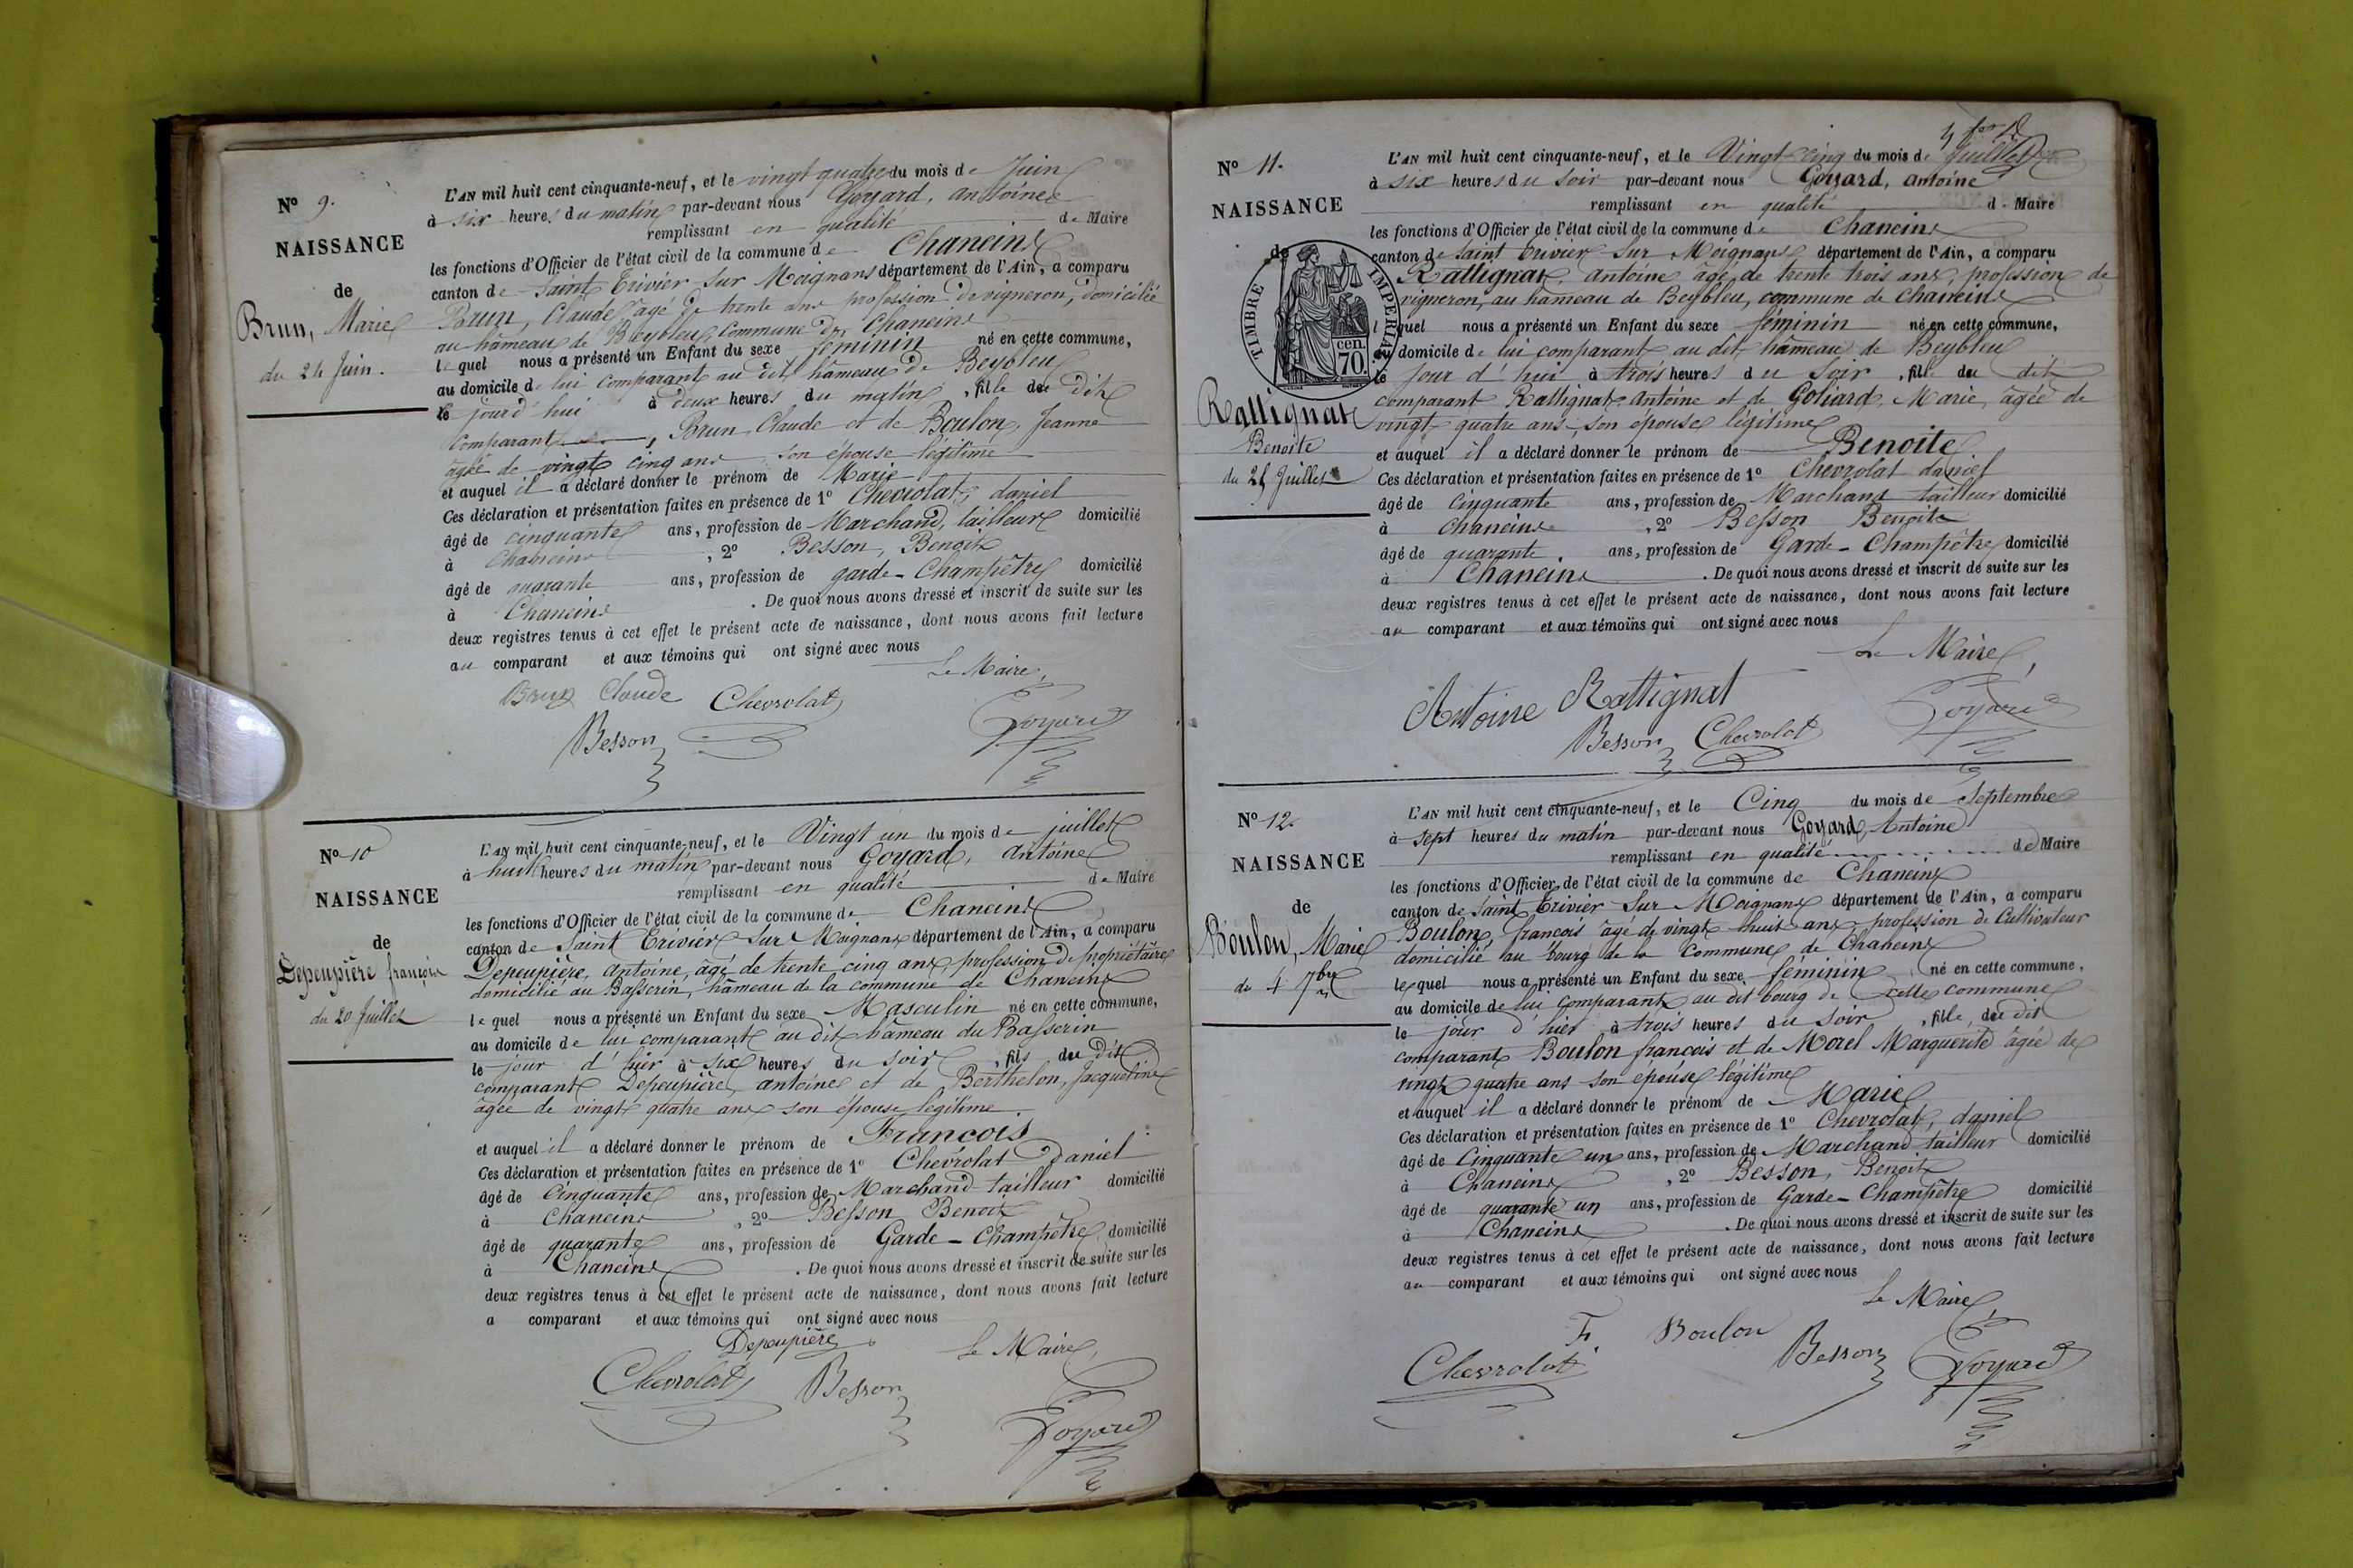 N° 9.
NAISSANCE
de
Brun, Marie
du 24 Juin.
L'AN mil huit cent cinquante-neuf, et le vingt quatre du mois de Juin
à six heures du matin par-devant nous Goyard, antoine
remplissant en qualité de Maire
les fonctions d'Officier de l'état civil de la commune de Chaneins
canton de Saint Trivier Sur Moignans département de l'Ain, a comparu
Brun, Claude âgé de trente ans profession de vigneron, domicilié
au hâmeau de Beybleu, Commune de Chaneins
lequel nous a présenté un Enfant du sexe féminin né en cette commune,
au domicile de lui comparant au dit hâmeau de Beybleu
le jourd'hui à deux heures du matin, fille du dit
Comparant, Brun Claude et de Boulon, Jeanne
âgée de vingt cinq ans son épouse légitime
et auquel il a déclaré donner le prénom de Marie
Ces déclaration et présentation faites en présence de 1° Chevrolat, daniel
âgé de cinquante ans, profession de Marchand, tailleur domicilié
à Chaneins, 2° Besson, Benoit
âgé de quarante ans, profession de garde-Champêtre domicilié
à Chaneins. De quoi nous avons dressé et inscrit de suite sur les
deux registres tenus à cet effet le présent acte de naissance, dont nous avons fait lecture
au comparant et aux témoins qui ont signé avec nous
Le Maire,
Brun Claude Chevrolat
Besson Goyard
N° 10
NAISSANCE
de
Depeupière françois
du 20 Juillet
L'AN mil huit cent cinquante-neuf, et le Vingt un du mois de juillet
à huit heures du matin par-devant nous Goyard, antoine
remplissant en qualité de Maire
les fonctions d'Officier de l'état civil de la commune de Chaneins
canton de Saint Trivier Sur Moignans département de l'Ain, a comparu
Depeupière, antoine, âgé de trente cinq ans, profession de propriétaire
domicilié au Basserin, hâmeau de la commune de Chaneins
lequel nous a présenté un Enfant du sexe Masculin né en cette commune,
au domicile de lui comparant au dit hâmeau du Basserin
le jour d'hier à six heures du soir, fils du dit
comparant Depeupière, antoine et de Berthelon, Jacqueline
âgée de vingt quatre ans son épouse légitime.
et auquel il a déclaré donner le prénom de Francois
Ces déclaration et présentation faites en présence de 1° Chevrolat Daniel
âgé de Cinquante ans, profession de Marchand tailleur domicilié
à Chaneins, 2° Besson Benoit
âgé de quarante ans, profession de Garde-Champêtre domicilié
à Chaneins. De quoi nous avons dressé et inscrit de suite sur les
deux registres tenus à cet effet le présent acte de naissance, dont nous avons fait lecture
a comparant et aux témoins qui ont signé avec nous
Depeupière Le Maire,
Chevrolat Besson
Goyard
N° 11.
NAISSANCE
de
TIMBRE IMPERIAL
cen.
70.
Rattignat
Benoite
du 25 Juillet
L'AN mil huit cent cinquante-neuf, et le Vingt-cinq du mois de juillet
à six heures du soir par-devant nous Goyard, antoine
remplissant en qualité de Maire
les fonctions d'Officier de l'état civil de la commune de Chaneins
canton de Saint Trivier Sur Moignans département de l'Ain, a comparu
Rattignat, antoine âgé de trente trois ans, profession de
vigneron, au hâmeau de Beybleu, commune de chaneins
lequel nous a présenté un Enfant du sexe féminin né en cette commune,
au domicile de lui comparant au dit hâmeau de Beybleu
le jour d'hui à trois heures du soir, fille du dit
comparant Rattignat antoine et de Goliard, Marie, âgée de
vingt quatre ans, son épouse légitime
et auquel il a déclaré donner le prénom de Benoite
Ces déclaration et présentation faites en présence de 1° Chevrolat daniel
âgé de cinquante ans, profession de Marchand tailleur domicilié
à Chaneins, 2° Besson Benoit
âgé de quarante. ans, profession de Garde-Champêtre domicilié
à Chaneins. De quoi nous avons dressé et inscrit de suite sur les
deux registres tenus à cet effet le présent acte de naissance, dont nous avons fait lecture
au comparant et aux témoins qui ont signé avec nous
Le Maire,
Antoine Rattignat
Besson Chevrolat Goyard
N° 12.
NAISSANCE
de
Boulon, Marie
du 4 7bre
L'AN mil huit cent cinquante-neuf, et le Cinq du mois de Septembre
à sept heures du matin par-devant nous Goyard, Antoine
remplissant en qualité de Maire
les fonctions d'Officier de l'état civil de la commune de Chaneins
canton de Saint Trivier Sur Moignans département de l'Ain, a comparu
Boulon, francois âgé de vingt huit ans profession de Cultivateur
domicilié au bourg de la Commune de Chaneins
lequel nous a présenté un Enfant du sexe féminin né en cette commune,
au domicile de lui comparant au dit bourg de cette commune
le jour d'hier à trois heures du soir, fille du dit
comparant Boulon francois et de Morel Marguerite âgée de
vingt quatre ans son épouse légitime
et auquel il a déclaré donner le prénom de Marie
Ces déclaration et présentation faites en présence de 1° Chevrolat, daniel
âgé de Cinquante un ans, profession de Marchand tailleur domicilié
à Chaneins, 2° Besson, Benoit
âgé de quarante un ans, profession de Garde-Champêtre domicilié
à Chaneins. De quoi nous avons dressé et inscrit de suite sur les
deux registres tenus à cet effet le présent acte de naissance, dont nous avons fait lecture
au comparant et aux témoins qui ont signé avec nous
Le Maire,
F Boulon
Chevrolat Besson Goyard